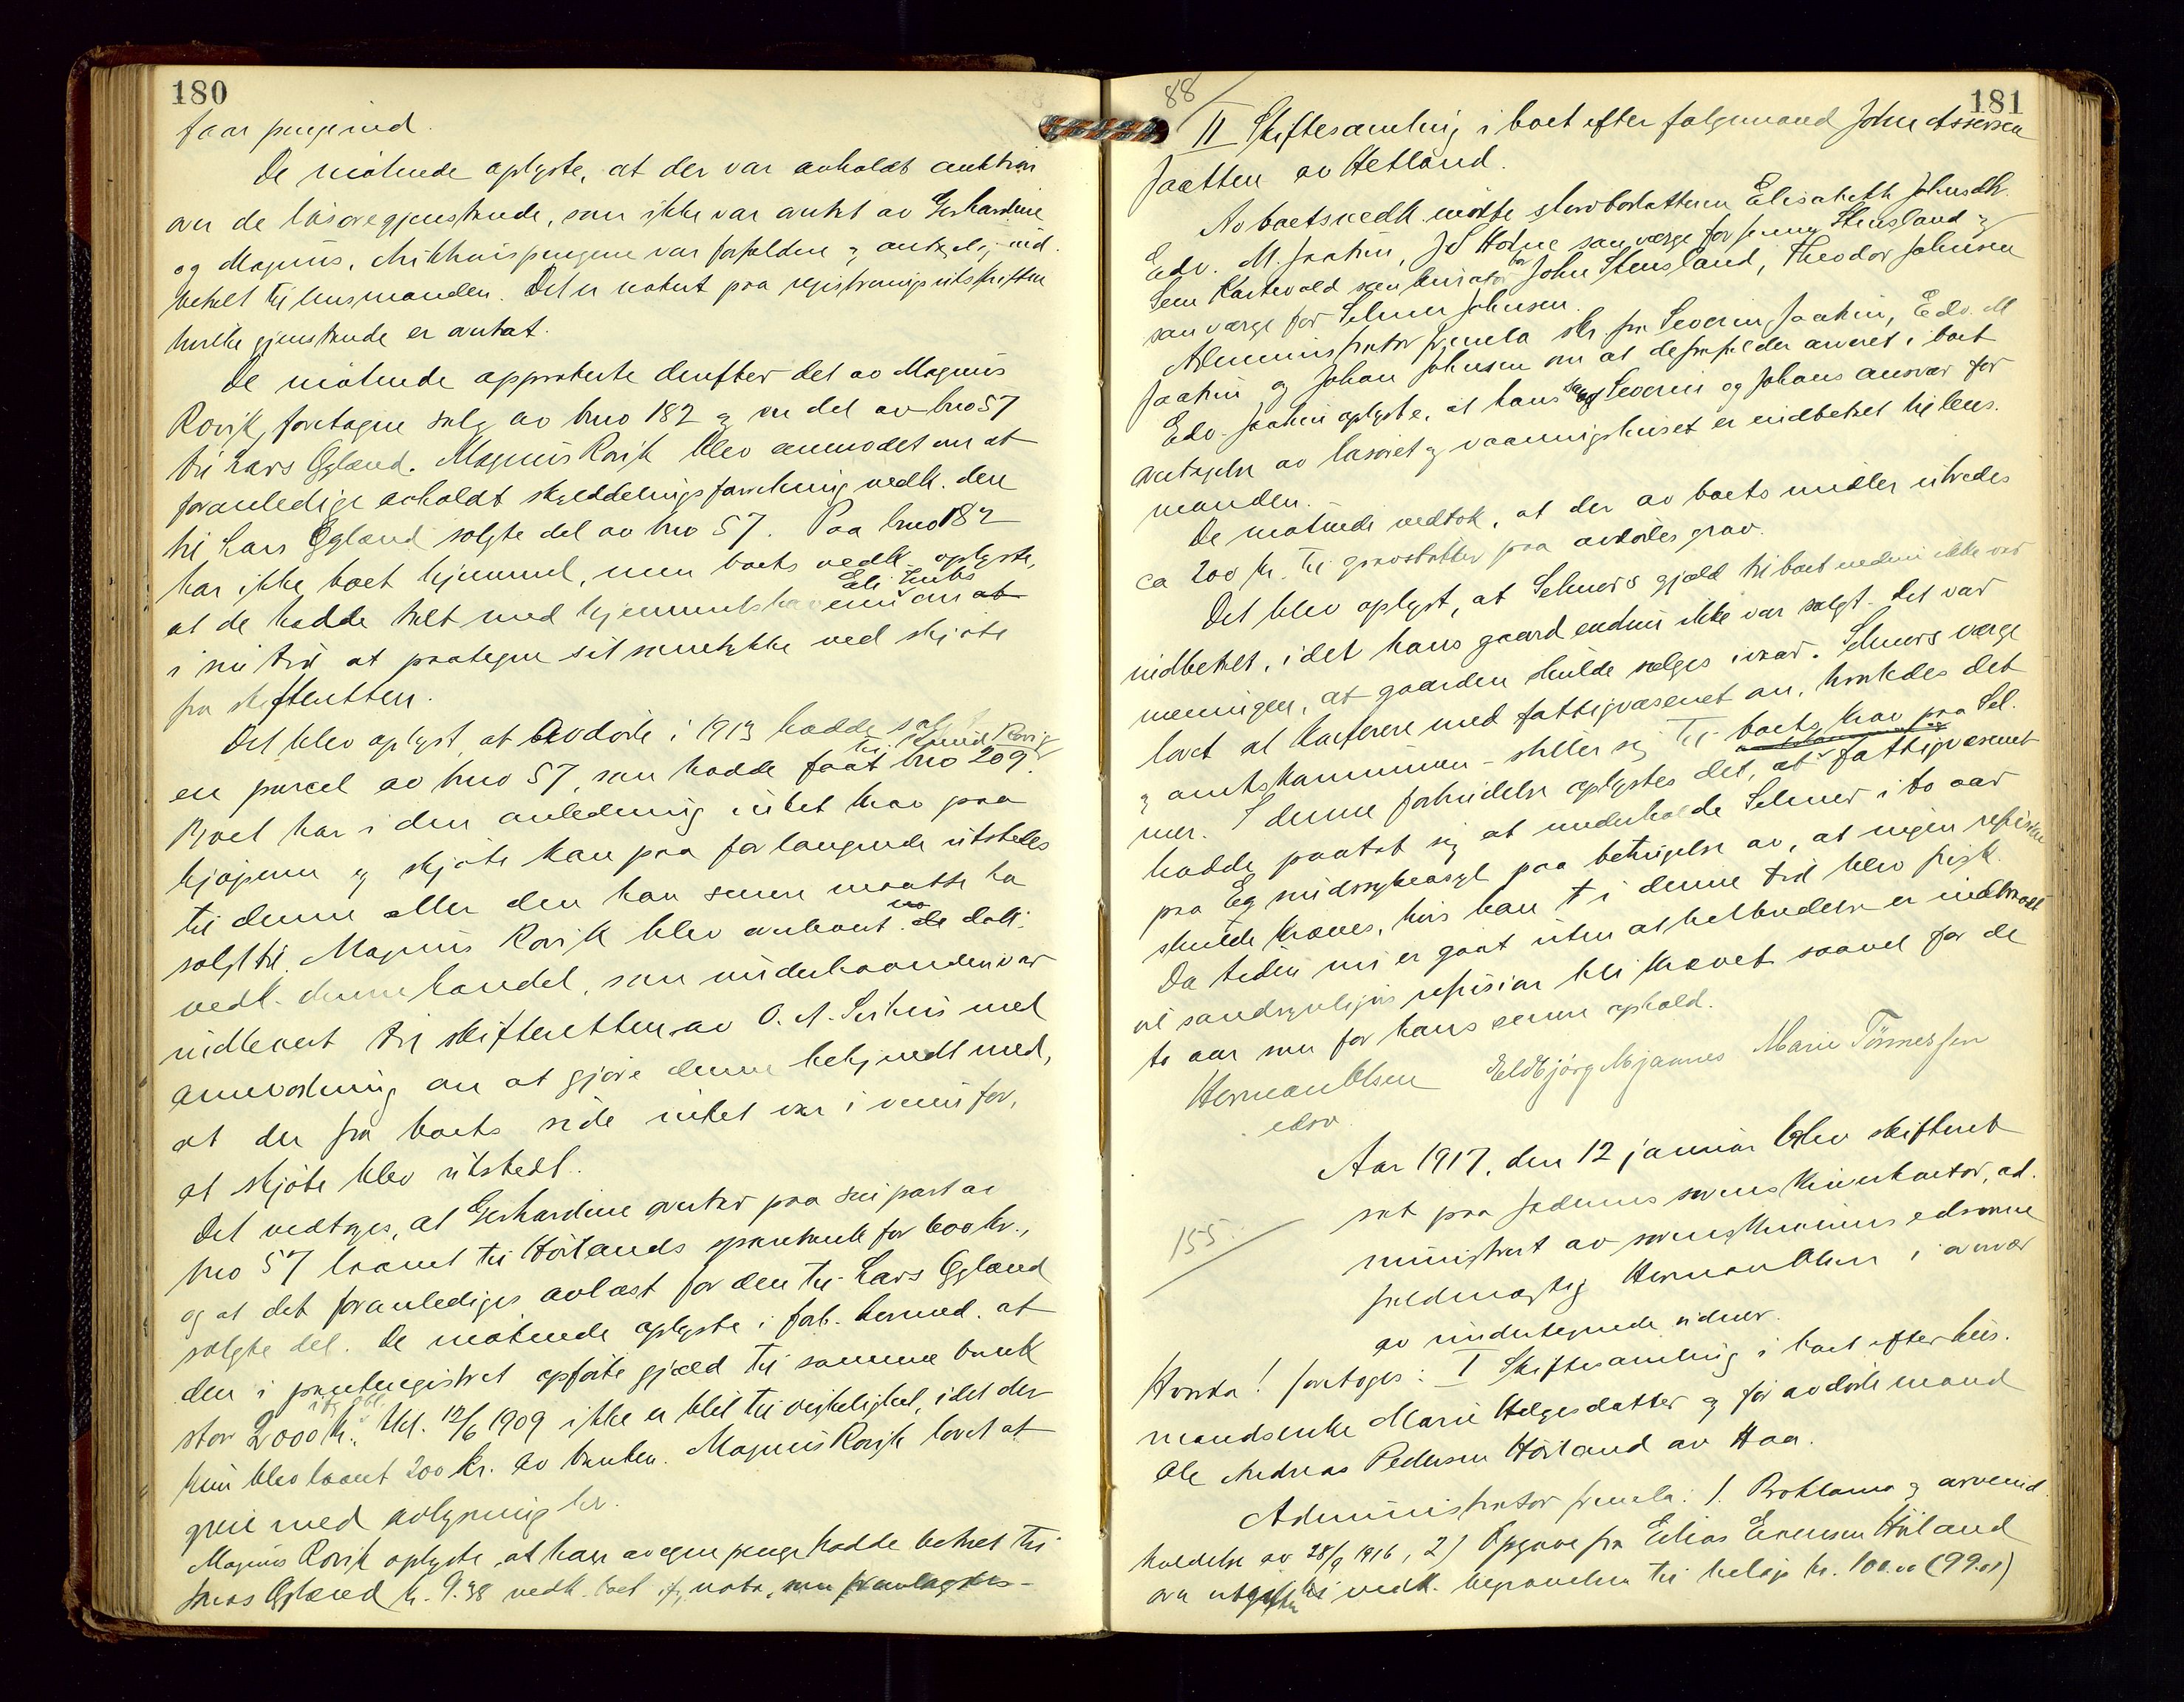 180
faar penge ind.
De møtende oplyste, at der var avholdt auktion
over de løsøregjenstande, som ikke var avtat av Gerhardine
og Magnus. Auktionspengene var forfaldne og antagelig ind-
betalt til lensmanden. Det er notert paa registreringsutskriften
hvilke gjenstande er avtat.
De møtende approberte derefter det av Magnus
Rovik foretagne salg av bno 182 og en del av bno 57
til Lars Ogland. Magnus Rovik blev anmodet om at
foranledige avholdt skylddelingsforretning vedk. den
til Lars Ogland solgte del av bno 57. Paa bno 182
har ikke boet hjemmel, men boets vedk. oplyste,
at de hadde talt med hjemmelshaveren om at
i sin tid at paategne sit samtykke ved skjøte
fra skifteretten.
Det blev oplyst, at avdøde i 1913 hadde solgt
en parcel av bno 57, som hadde faat bno 209.
Boet har i den anledning intet krav paa
kjøperen og skjøte kan paa forlangende utstedes
til denne eller den han senere maatte ha
solgt til. Magnus Rovik blev anbevt. no dok.
vedk. denne handel, som underhaanden var
indlevert til skifteretten av O. A. med
anmodning om at gjøre denne bekjendt med,
at der fra boets side intet var i veien for,
at skjøte blev utstedt.
Det vedtages, at Gerhardine overtar paa sin part av
bno 57 laanet til Hølands sparebank for 600 kr.,
og at det foranlediges avlæst for den til Lars Ogland
solgte del. De møtende oplyste i forb. hermed, at
den i panteregistret opførte gjæld til samme bank
stor 2000 kr. tlst. 12/6 1909 ikke er blit til virkelighet, idet der
kun blev laant 200 kr. av banken. Magnus Rovik lovet at
greie med avlysning her.
Magnus Rovik oplyste, at han av egne penge hadde betalt til
Jonas Ogland kr. 9.38 vedk. boet if. nota, som
88
181
II Skiftesamling i boet efter følgemand John Assersen
Jaatten av Hetland.
Av boets vedk. møtte sterbodatteren Elisabeth Johnsdtr.
Edv. M. Jaatun, J S Hodne som verge for Jenny Stensland og
Sem Kartevold som kurator for John Stensland, Theodor Johnsen
som verge for Selmer Johnsen.
Administrator fremla skr. fra Severin Jaatun, Edv. M
Jaatun og Johan Johnsen om at de frafalder arveret i boet
Edv. Jaatun oplyste, at hans samt Severin og Johans ansvar for
overtagelse av løsøret og vaaningshuset er indbetalt til lens-
manden.
De møtende vedtok, at der av boets midler utredes
ca 200 kr. til gravstøtter paa avdødes grav.
Det blev oplyst, at Selmers gjæld til boet endnu ikke var
indbetalt, idet hans gaard endnu ikke var solgt. Det var
meningen, at gaarden skulde sælges ivaar. Selmers verge
lovet at konferere med fattigvæsenet om, hvorledes det
og amtskommunen stiller sig til boets krav paa Sel-
mer. I denne forbindelse oplystes det, at fattigvæsenet
hadde paatat sig at underholde Selmer i to aar
paa Eg sindssykeasyl paa betingelse av, at ingen refusion
skulde kræves, hvis han i denne tid blev frisk.
Da tiden nu er gaat uten at helbredelse er indtraadt
vil sandsynligvis refusion bli krævet saavel for de
to aar som for hans senere ophold.
Herman Olsen Eldbjørg Mjaanes Marie Tönnessen
edsv.
155.
Aar 1917, den 12 januar blev skifteret
sat paa Jæderens sorenskriverkontor, ad-
ministrert av sorenskriverens edsvorne
fuldmægtig Herman Olsen i overvær
av undertegnede vidner.
Hvorda! foretoges: I Skiftesamling i boet efter hus-
mandsenke Marie Helgesdatter og før avdøde mand
Ole Andreas Pedersen Höiland av Haa.
Administrator fremla: 1. Proklama og arveind-
kaldelse av 28/9 1916, 2) Opgave fra Elias Enevsen Höiland
over utgifter vedk. begravelsen til beløp kr. 100.00 (99.01)